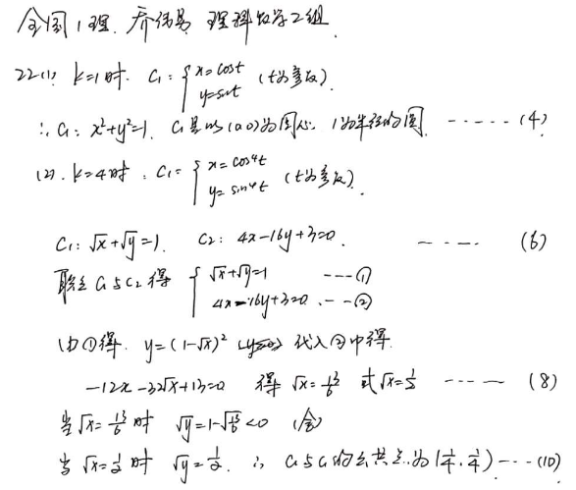 全国1理. 乔伟易 理科数学2组.
22.(1) k=1时. C₁: { x=cost y=sint (t为参数).
∴ C₁: x²+y²=1. C₁是以(0,0)为圆心, 1为半径的圆. ------(4)
(2). k=4时: C₁= { x=cos⁴t y=sin⁴t (t为参数).
C₁: √x+√y=1. C₂: 4x-16y+3=0. ------(6)
联立C₁与C₂得 { √x+√y=1 ---① 4x-16y+3=0 .--②
由①得. y=(1-√x)² 代入②中得.
-12x-32√x+13=0 得 √x=13/6 或√x=1/2 ------(8)
当√x=13/6时 √y=1-√13/6<0 (舍)
当√x=1/2时 √y=1/2. ∴ C₁与C₂的公共点为(1/4, 1/4)---(10)